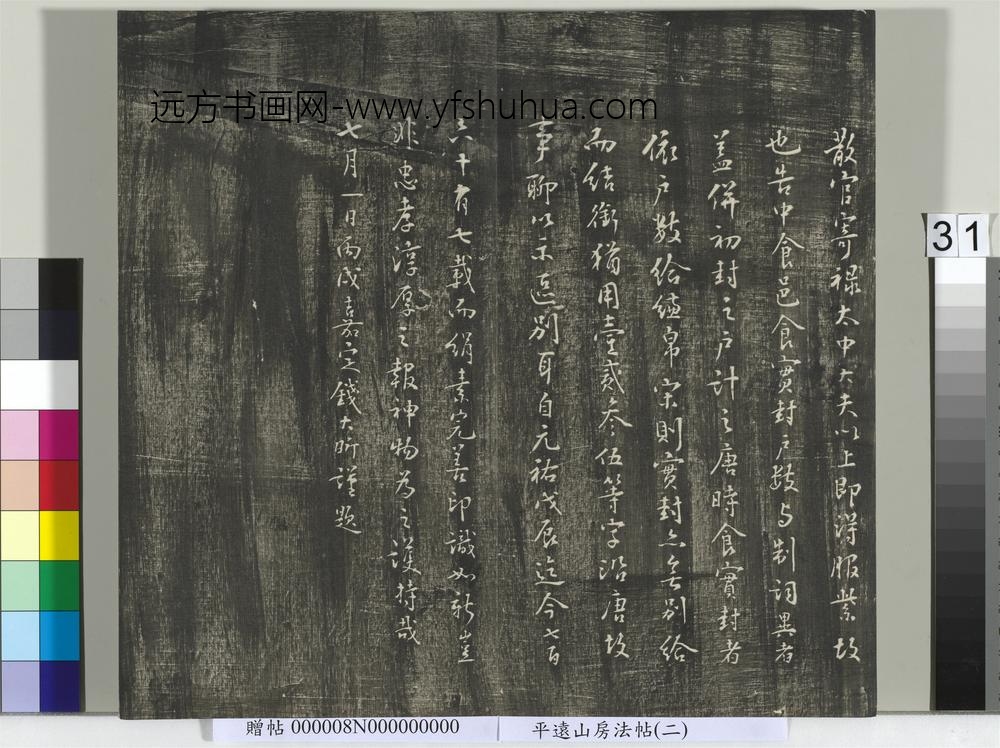 远方书画网-www.yfshuhua.com
散官寄祿太中大夫以上即得服紫故
也告中食邑食實封戶數与制詞異者
蓋併初封之戶計之唐時食實封者
依戶數給縑帛宋則實封亦無別給
而結銜猶用壹貳參伍等字沿唐故
事聊以示區別耳自元祐戊辰迄今七百
六十有七載而絹素完善印識如新豈
非忠孝淳厚之報神物為之護持哉
七月一日丙戌嘉定錢大昕謹題
31
贈帖 000008N000000000
平遠山房法帖(二)